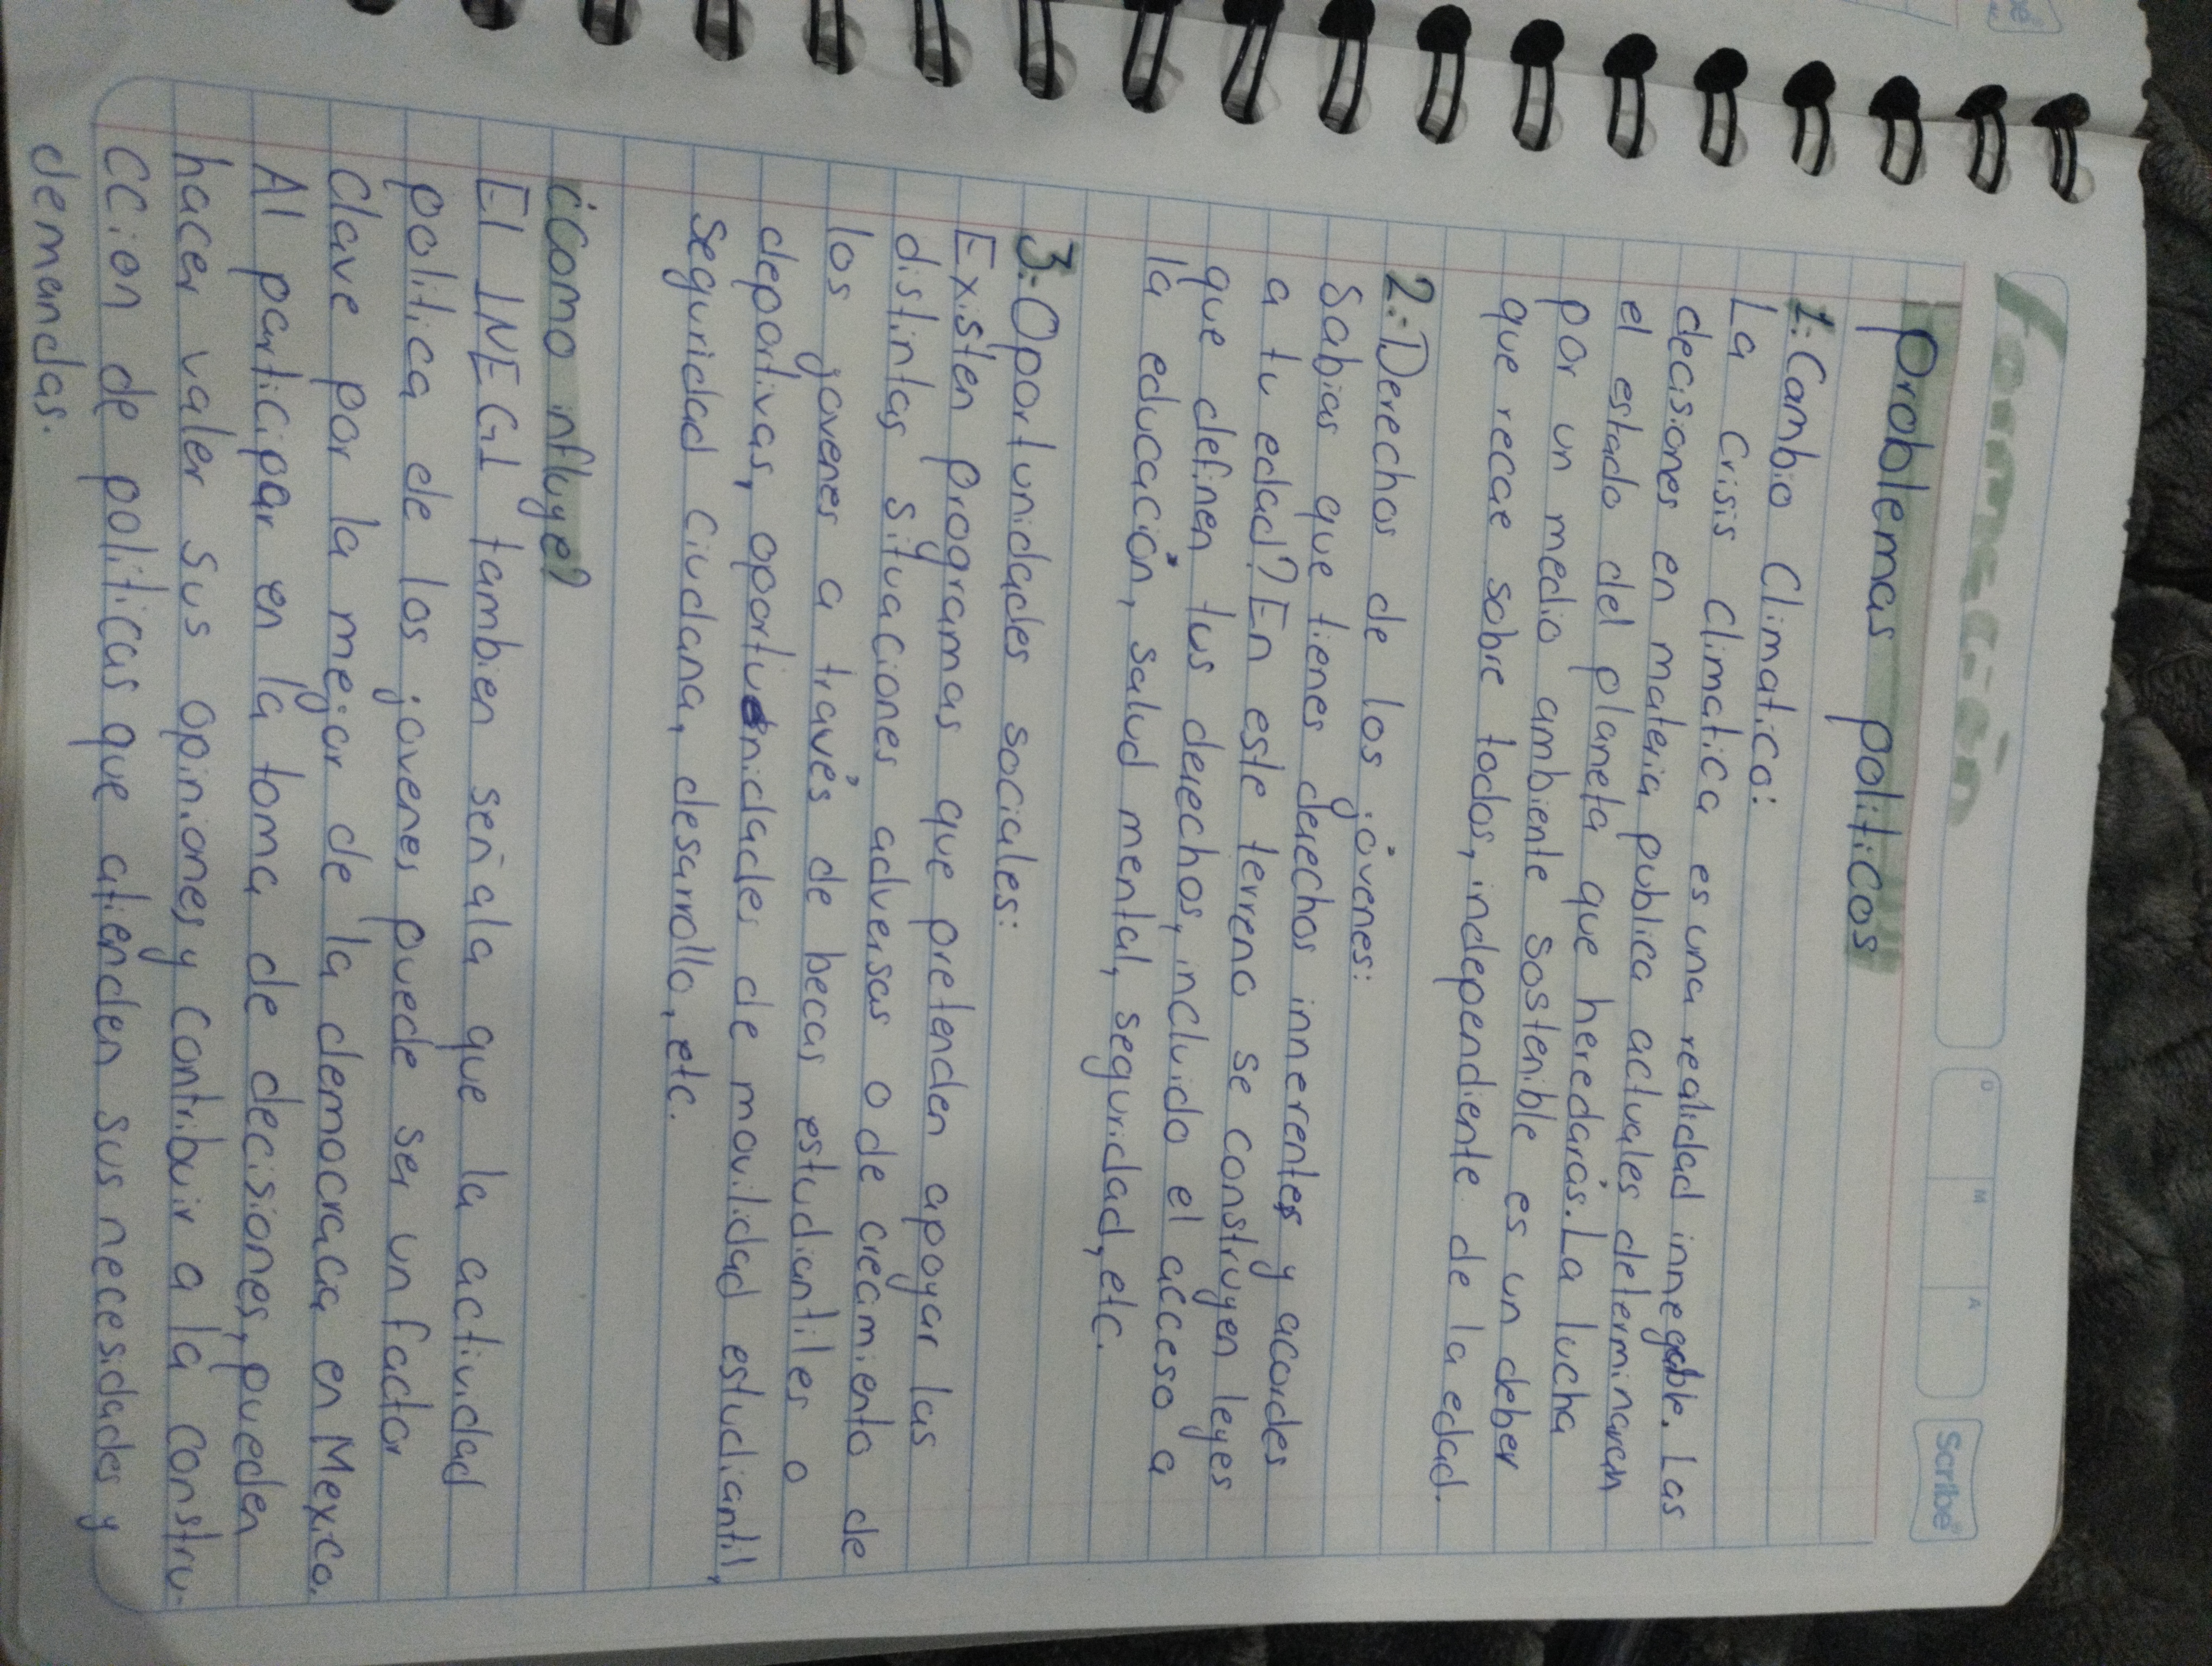 Formación
D M A
Scribe
Problemas politicos
1.-Cambio Climatico:
La crisis climatica es una realidad innegable. Las
decisiones en materia publica actuales determinaram
el estado del planeta que heredarás. La lucha
por un medio ambiente sostenible es un deber
que recae sobre todos, independiente de la edad.
2.-Derechos de los jóvenes:
Sabias que tienes derechos innerentes y acordes
a tu edad? En este terreno se construyen leyes
que definen tus derechos, incluido el acceso a
la educación, salud mental, seguridad, etc.
3.-Oportunidades sociales:
Existen programas que pretenden apoyar las
distintas situaciones adversas o de crecimiento de
los jovenes a través de becas estudiantiles o
deportivas, oportunidades de movilidad estudiantil,
seguridad ciudana, desarrollo, etc.
¿como influye?
El INEGI tambien señala que la actividad
politica de los jovenes puede ser un factor
clave por la mejor de la democracia en Mexico.
Al participar en la toma de decisiones, pueden
hacer valer sus opiniones y contribuir a la constru-
ccion de politicas que atienden sus necesidades y
demandas.